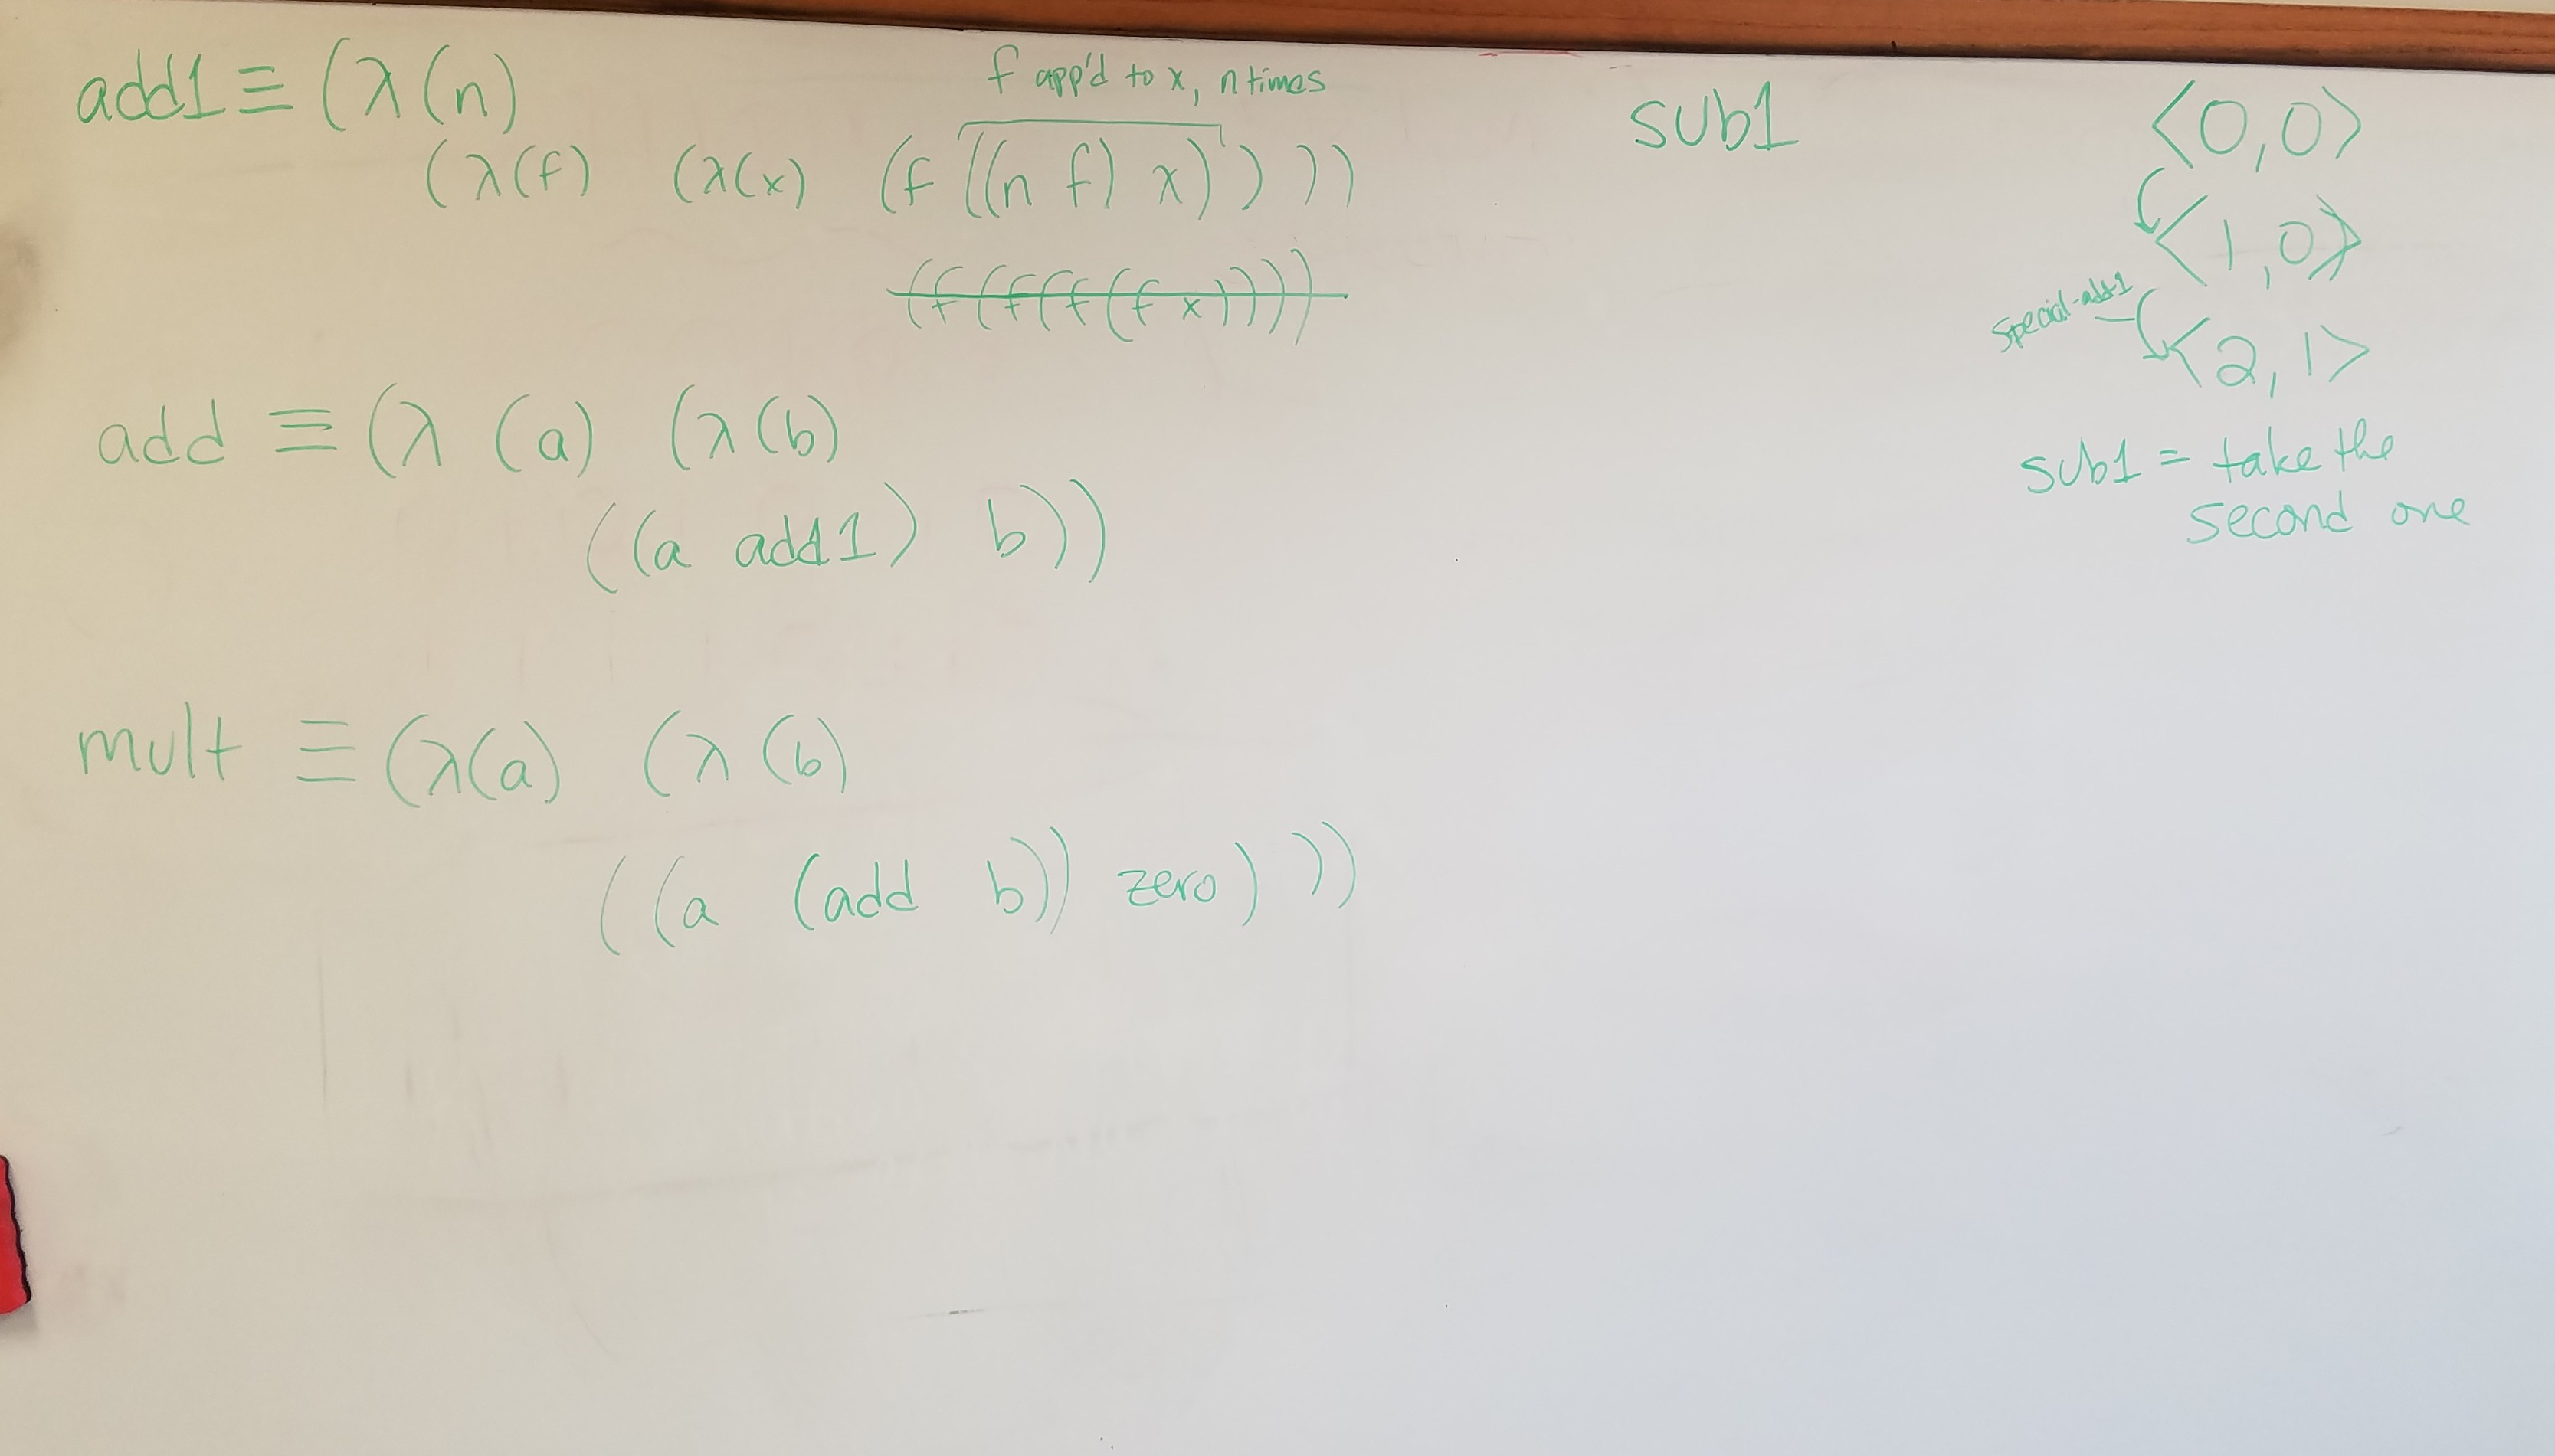 add1 ≡ (λ (n)
f app'd to x, n times
(λ(f) (λ(x) (f ((n f) x) ) ) )
(f (f (f (f x))))
add ≡ (λ (a) (λ (b)
((a add1) b)))
mult ≡ (λ(a) (λ (b)
((a (add b)) zero) ))
sub1
<0,0>
<1,0>
special-add1
<2,1>
sub1 = take the
second one